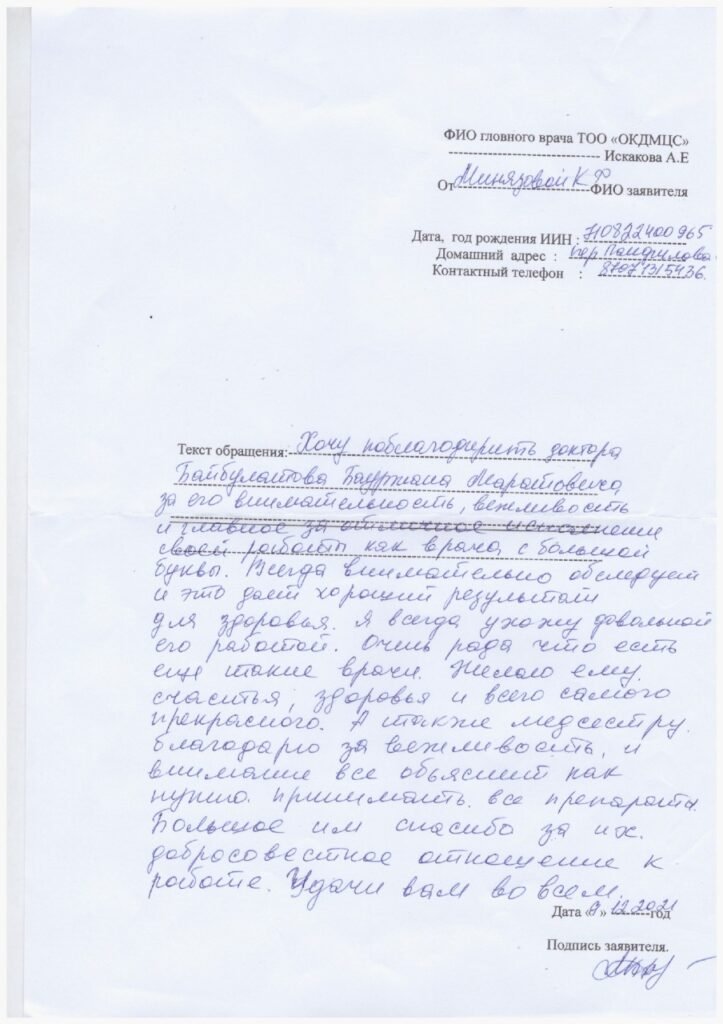 ФИО главного врача ТОО «ОКДМЦС»
Искакова А.Е
От Минязовой К Ф ФИО заявителя
Дата, год рождения ИИН : 710822400965
Домашний адрес : пер. Панфилова
Контактный телефон : 87071315436.
Текст обращения: Хочу поблагодарить доктора
Байбулатова Бауржана Маратовича
за его внимательность, вежливость
и главное за отличное исполнение
своей работы как врача с большой
буквы. Всегда внимательно обследует
и это дает хороший результат
для здоровья. Я всегда ухожу довольной
его работой. Очень рада что есть
ещё такие врачи. Желаю ему
счастья, здоровья и всего самого
прекрасного. А также медсестру
благодарю за вежливость, и
внимание все объяснит как
нужно принимать все препараты.
Большое им спасибо за их
добросовестное отношение к
работе. Удачи вам во всем.
Дата «9» 12.2021 год
Подпись заявителя.